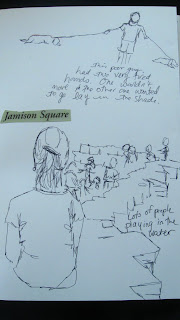 this poor guy
had two very tired
hands. One wouldn't
move & the other one wanted
to go lay in the shade.
Jamison Square
Lots of people
playing in the
water